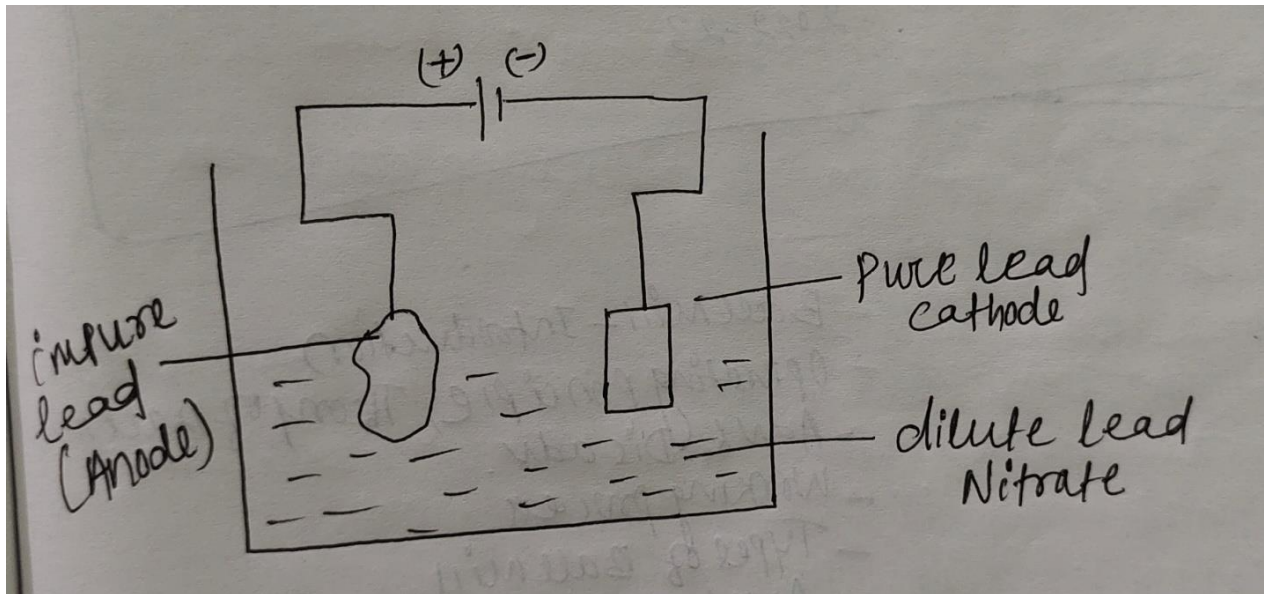 (+) (-)
impure
lead
(Anode)
Pure lead
cathode
dilute lead
Nitrate